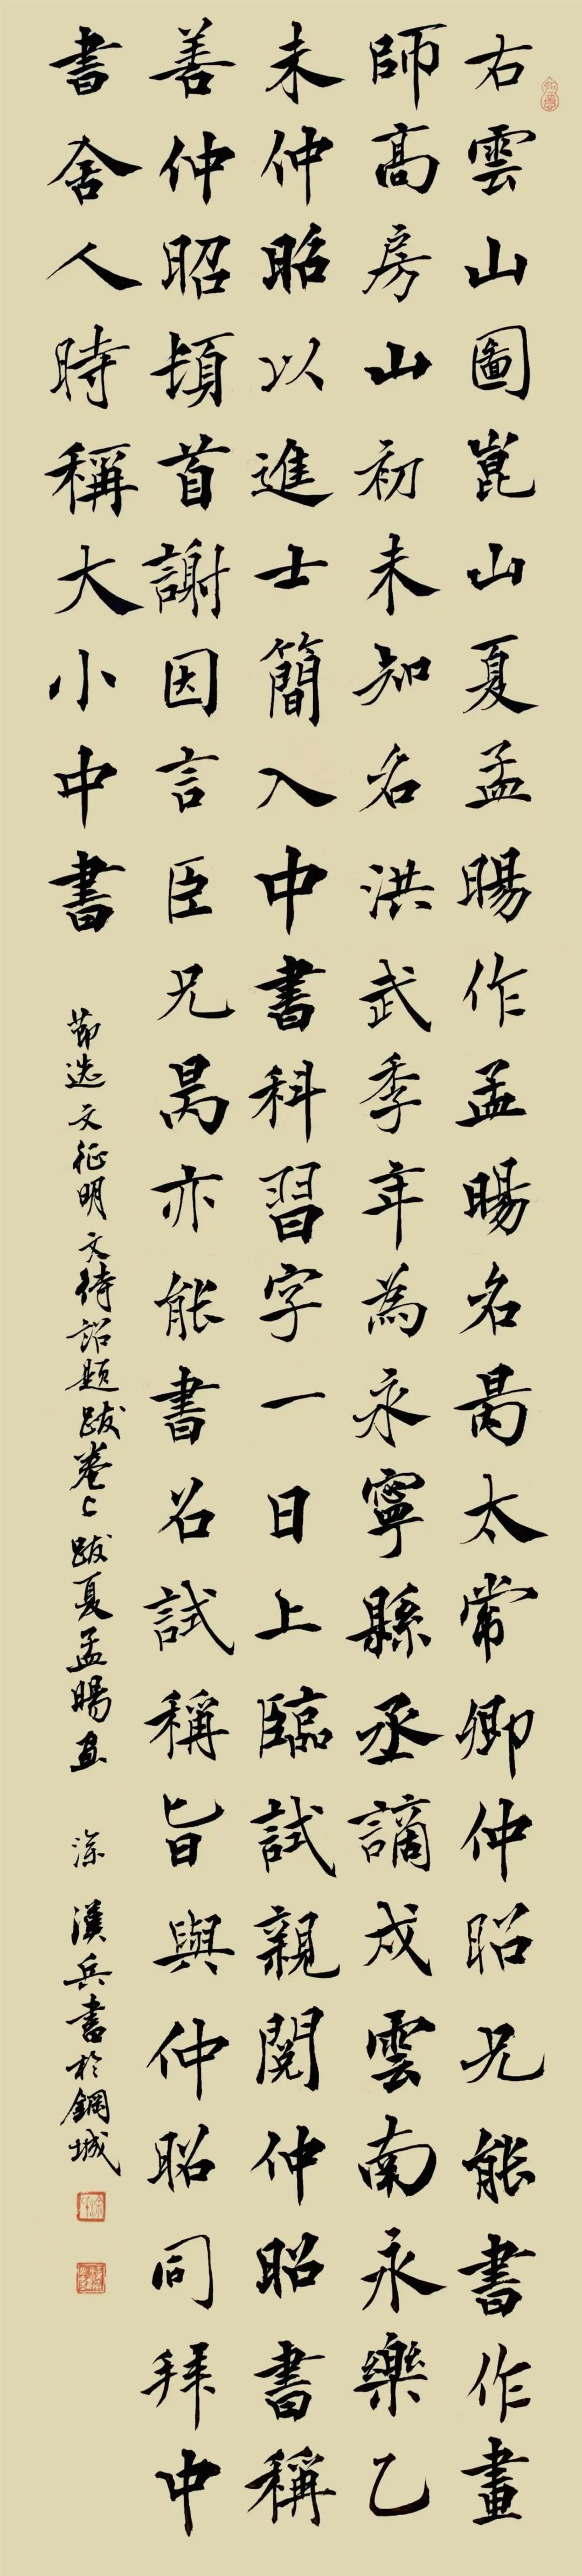 右雲山圖崑山夏孟暘作孟暘名昺太常卿仲昭兄能書作畫
師高房山初未知名洪武季年為永寧縣丞謫戍雲南永樂乙
未仲昭以進士簡入中書科習字一日上臨試親閱仲昭書稱
善仲昭頓首謝因言臣兄昺亦能書召試稱旨與仲昭同拜中
書舍人時稱大小中書
節选文征明文待詔題跋卷上跋夏孟暘画 涂漢兵書於鋼城